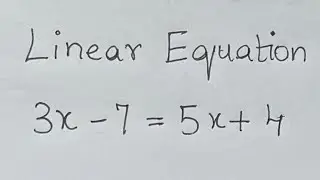 Linear Equation
3x - 7 = 5x + 4